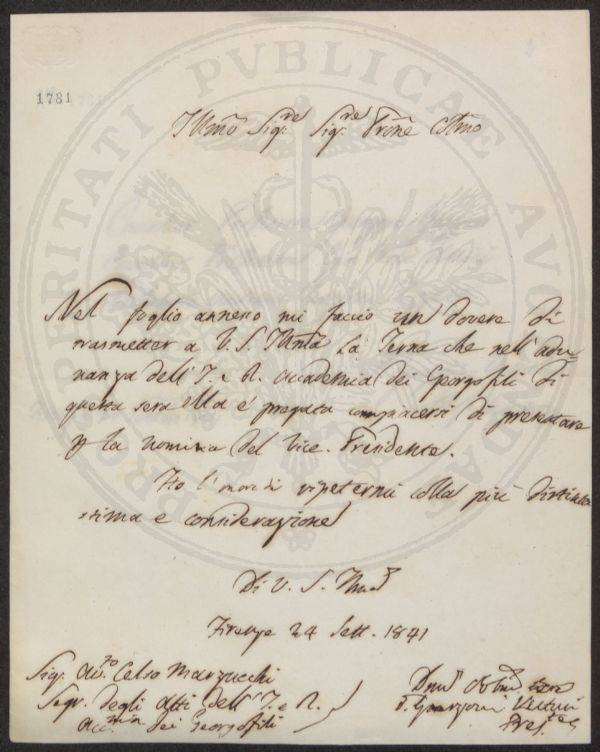 1781
Illmo Sigre Sigre Prone Colmo
Nel foglio annesso mi faccio un dovere di
trasmetter a V. S. Illma la Terna che nell' adu=
nanza dell' I. e R. Accademia dei Georgofili di
questa sera ella è pregata compiacersi di presentare
p la nomina del Vice-Presidente.
Ho l' onore di ripetermi colla più distinta
stima e considerazione
Di V. S. Illma
Firenze 24 Sett. 1841
Sigr Avvo Celso Marzucchi
Segr. degli Atti dell' I. e R.
Accmia dei Georgofili
Devmo Obbmo
PROSPERITATI PVBLICAE AVGENDAE